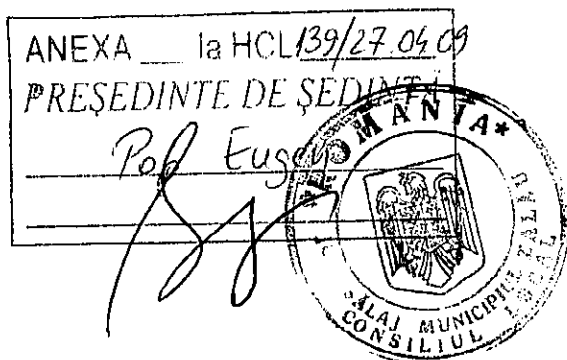 ANEXA ___ la HCL 139/27.04.09
PREȘEDINTE DE ȘEDINȚĂ
Pop Eugen
ROMÂNIA*
SĂLAJ MUNICIPIUL ZALĂU
CONSILIUL LOCAL